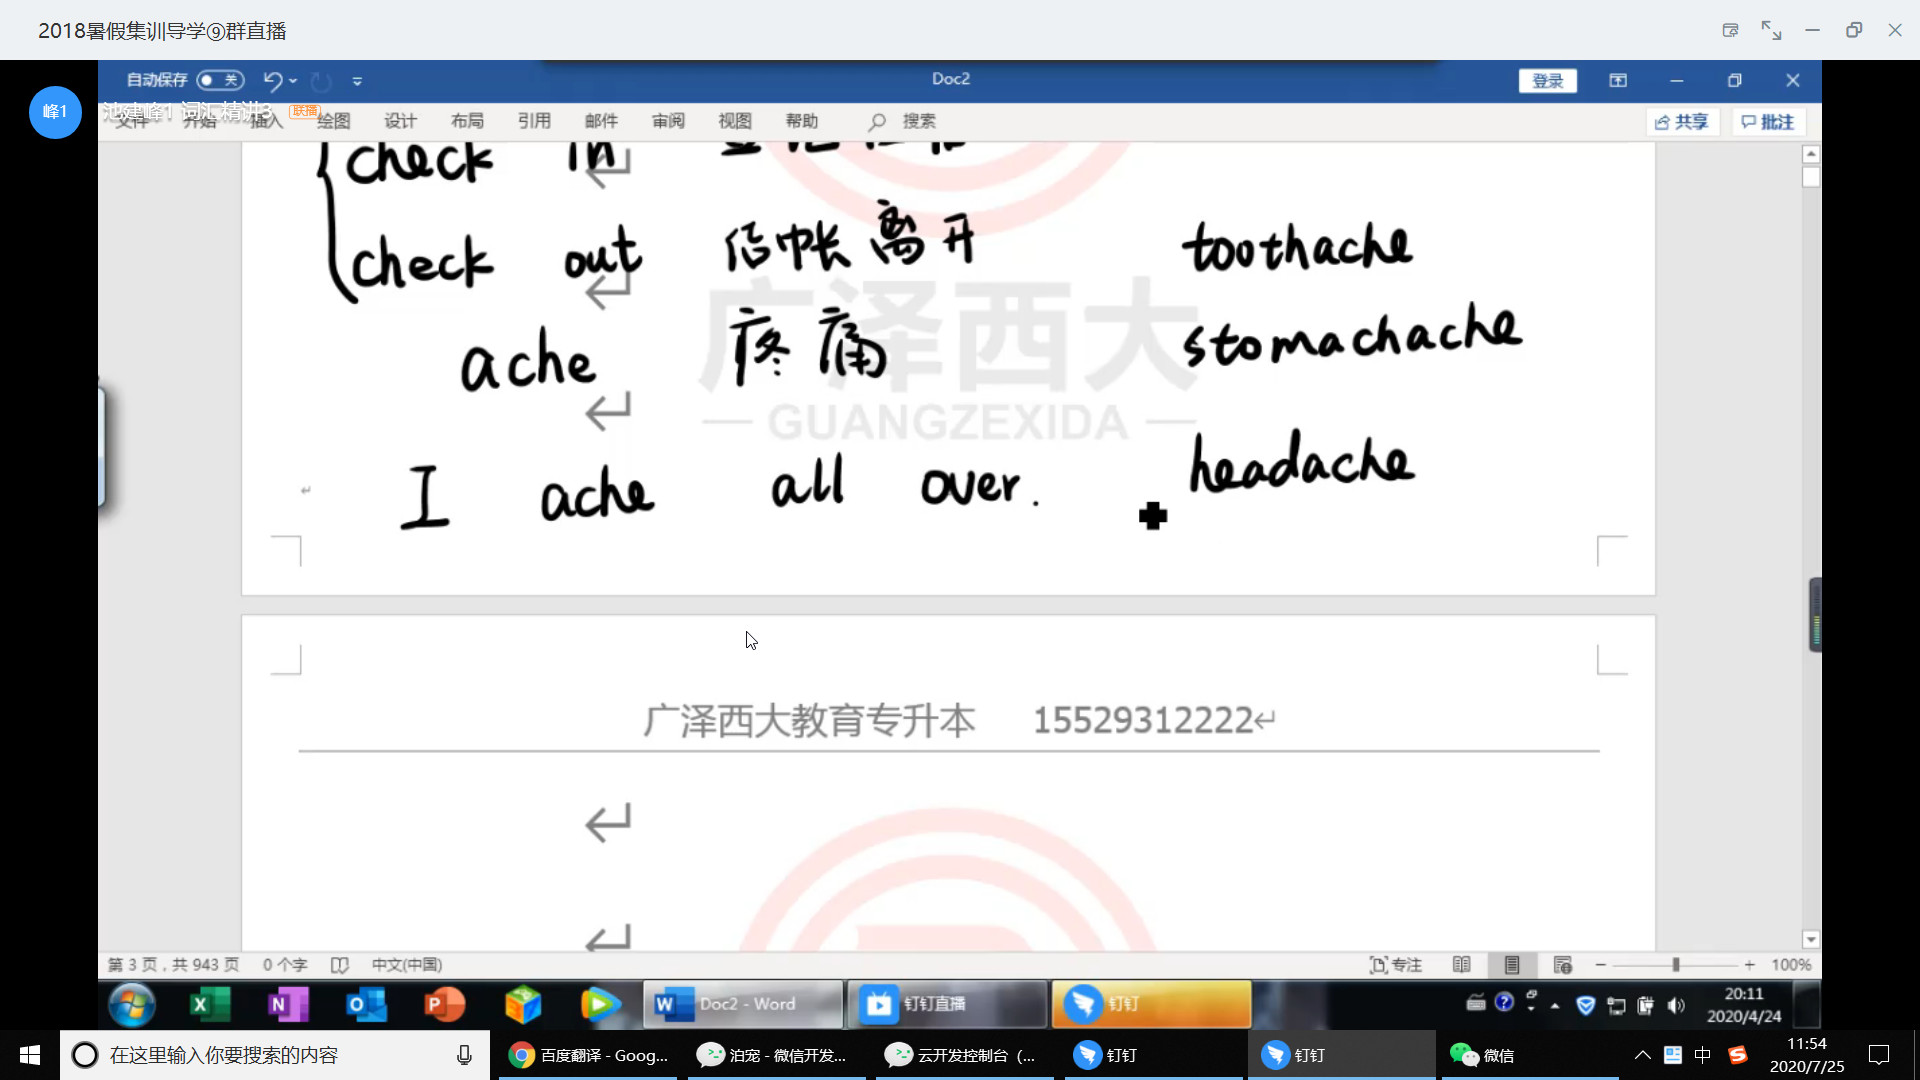 2018暑假集训导学⑨群直播
自动保存 关 Doc2 登录
峰1 池建峰1 词汇精讲3 联播
文件 开始 插入 绘图 设计 布局 引用 邮件 审阅 视图 帮助 搜索 共享 批注
check in
check out 结帐离开 toothache
ache 疼痛 stomachache
广泽西大
— GUANGZEXIDA —
I ache all over. headache
广泽西大教育专升本 15529312222
第 3 页，共 943 页 0 个字 中文(中国) 专注 100%
Doc2 - Word 钉钉直播 钉钉 20:11
2020/4/24
在这里输入你要搜索的内容 百度翻译 - Goog... 泊宠 - 微信开发... 云开发控制台（... 钉钉 钉钉 微信 中 11:54
2020/7/25